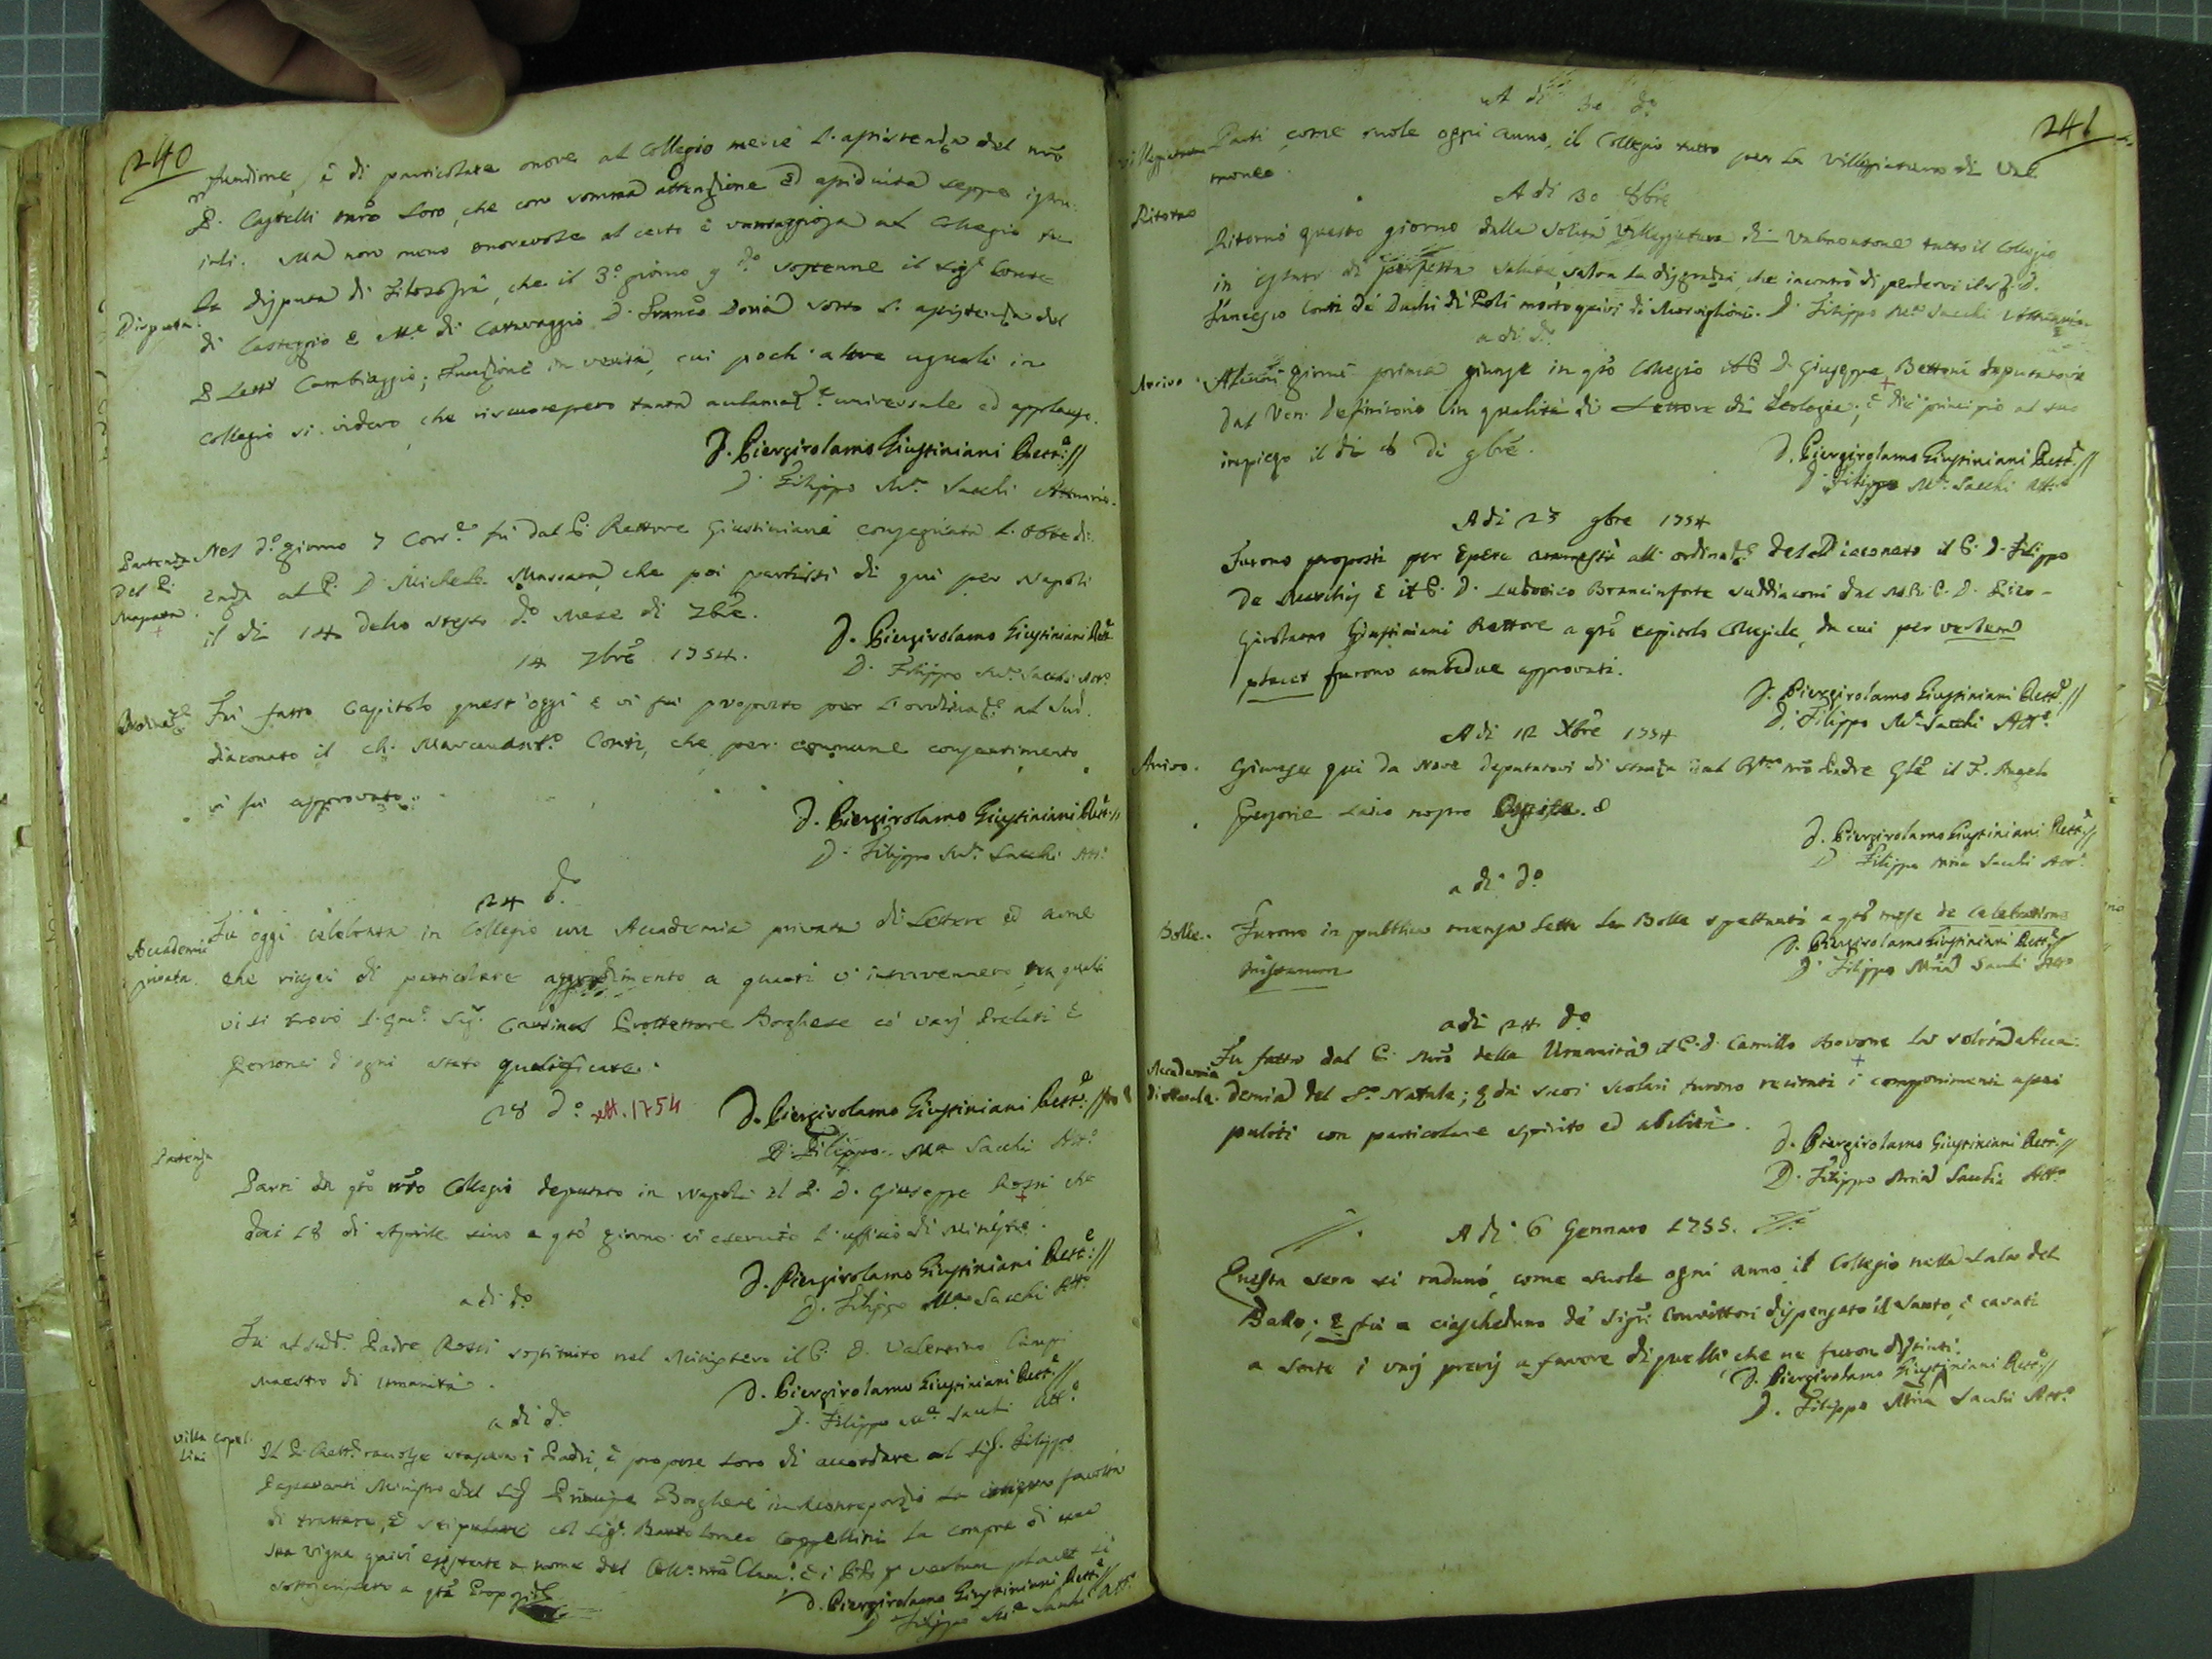 240
funzione, è di particolare onore al Collegio mercè l'assistenza del nro
P. Castelli mrō loro, che con somma attenzione ed assiduità seppe istru-
irli. Ma non meno onorevole al certo è vantaggiosa al Collegio fu
Disputa. la disputa di Filosofia, che il 3.º giorno sostenne il Sigr Conte
di Casteggio e Mse di Caravaggio D. Franco Doria sotto l'assistenza del
P. Lettr Cambiaggio; Funzione in verità, cui poche altre uguali in
Collegio si videro, che riscuotessero tanta universale ed applauso.
D. Piergirolamo Giustiniani Rett.e//
D. Filippo Ma. Sacchi Attuario.
Partenza
del P.
Massara.
Nel dº giorno 7 Corr.e fù dal P. Rettore Giustiniani consegnata l'obbedi-
enza al P. D. Michele Massara, che poi partissi di qui per Napoli
il di 14 dello stesso dº Mese di 7bre.
D. Piergirolamo Giustiniani Rett.e
D. Filippo Ma. Sacchi Att.º
14 7bre 1754.
Fù fatto Capitolo quest'oggi e vi fu proposto per l'ordinaz.e al Sud-
diaconato il ch. Marcantº Conti, che per commune consentimento
vi fu approvato.
D. Piergirolamo Giustiniani Rett.e//
D. Filippo Ma. Sacchi Att.º
24 dº
Accademia
privata.
Fu oggi celebrata in Collegio una Accademia privata di Lettere ed arme
che riuscì di particolare aggradimento a quanti v'intervennero, tra quali
vi si trovò l'Emo Sigr. Cardinal Prottettore Borghese co' varj Prelati e
persone d'ogni stato qualificate.
28 dº sett. 1754
D. Piergirolamo Giustiniani Rett.e//
D. Filippo Ma Sacchi Att.º
Partenza
Partì da qto nrō Collegio deputato in Napoli il P. D. Giuseppe Rossi che
dai 18 di Aprile sino a qto giorno vi esercitò l'uffizio di Ministro.
D. Piergirolamo Giustiniani Rett.e//
D. Filippo Ma Sacchi Att.º
a di dº
Fu al sudº Padre Rossi sostituito nel Ministero il P. D. Valentino Campi
Maestro di Umanità.
D. Piergirolamo Giustiniani Rett.e//
D. Filippo Ma. Sacchi Att.º
a di dº
Villa Copel-
lini
Il P. Rettre raccolse stasera i Padri, e propose loro di accordare al Sigr. Filippo
Passavanti Ministro del Sigr Principe Borghese la intiera facoltà
di trattare, e stipulare col Sigr. Bartolomeo Coppellini la compra di una
sua vigna quivi esistente a nome del Coll.º nrō Clem.º e i PP. per verbum placet si
sottoscrissero a qta Proposiz.e
D. Piergirolamo Giustiniani Rett.e//
D. Filippo Ma Sacchi Att.º
241
A di 30 dº
Villeggiatura Partì come suole ogni anno, il Collegio tutto per la Villeggiatura di Val
montone.
A di 30 8bre
Ritorno
Ritornò questo giorno dalla solita Villeggiatura di Valmontone tutto il Collegio
in istato di perfetta salute, salva la disgrazia, che incontrò di perdervi il Sigr D.
Francesco Conti de' Duchi di Poli morto quivi di Morviglioni. D. Filippo Ma Sacchi Attuario
a di dº
Arrivo. Alcuni giorni prima giunse in qto Collegio il P. D. Giuseppe Bettoni deputatovi
dal Ven. Definitorio in qualità di Lettore di Teologia; e diè principio al suo
impiego il di 8 di 9bre.
D. Piergirolamo Giustiniani Rett.e//
D. Filippo Ma. Sacchi Att.º
A di 23 9bre 1754
Furono proposti per essere ammessi all'ordinaz.e del Diaconato il P. D. Filippo
De Marchis e il P. D. Ludovico Branciforte suddiaconi dal M.R.P. D. Piero-
Girolamo Giustiniani Rettore a qto capitolo Collegiale, da cui per verbum
placet furono ambedue approvati.
D. Piergirolamo Giustiniani Rett.e//
D. Filippo Ma Sacchi Att.º
A di 12 Xbre 1754
Arrivo. Giunse qui da Nove deputatovi di stanza dal Rmo nrō Padre Gle il F. Angelo
Gregorio nostro Ospite.
D. Piergirolamo Giustiniani Rett.e//
D. Filippo Mria Sacchi Att.º
a di dº
Bolle. Furono in pubblica mensa lette le Bolle spettanti a qto mese de Celebratione
Missarum
D. Piergirolamo Giustiniani Rett.e//
D. Filippo Mria Sacchi Att.º
a di 24 dº
Accademia
di Natale.
Fu fatta dal P. Mrō della Umanità il P. D. Camillo Bovone la solita Acca-
demia del Sº Natale; e da suoi scolari furono recitati i componimenti assai
puliti con particolare spirito ed abilità.
D. Piergirolamo Giustiniani Rett.e//
D. Filippo Mria Sacchi Att.º
A di 6 Gennaro 1755.
Questa sera si radunò, come suole ogni anno il Collegio nella Sala del
Ballo; e fu a ciascheduno de' Sigri Convittori dispensato il Santo, e cavati
a sorte i varj premj a favore di quelli che ne furon distinti.
D. Piergirolamo Giustiniani Rett.e//
D. Filippo Mria Sacchi Att.º